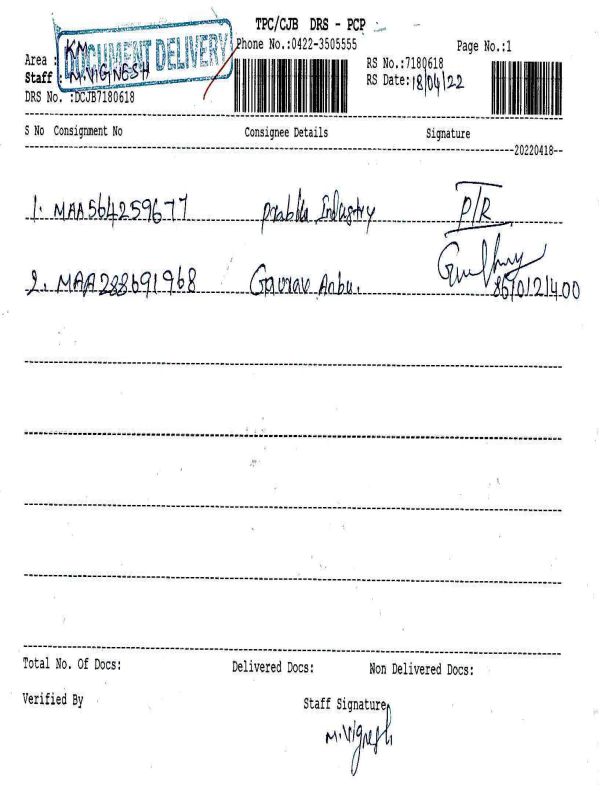 TPC/CJB DRS - PCP
Phone No.:0422-3505555
Page No.:1
DOCUMENT DELIVERY
Area : KM
Staff M.VIGNESH
RS No.:7180618
RS Date:18/04/22
DRS No. :DCJB7180618
S No Consignment No Consignee Details Signature
20220418
1. MAA564259677 Prabhu Industry P/R
2. MAA288691968 Gaurav Anbu.
Total No. Of Docs: Delivered Docs: Non Delivered Docs:
Verified By Staff Signature
M.Vignesh